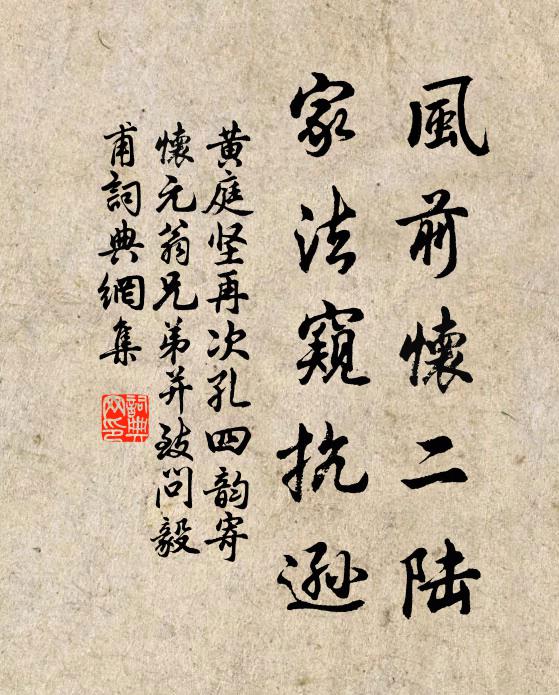 風前懷二陆
家法窺抗遜
黄庭坚再次孔四韵寄
懷元翁兄弟并致问毅
甫詞典網集
詞典
网印